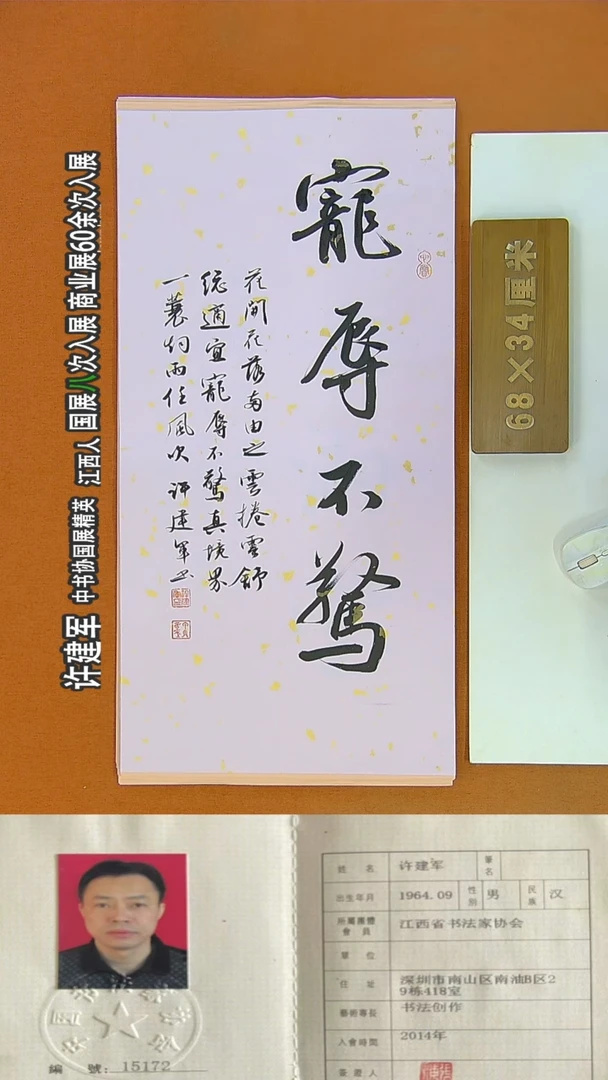 寵辱不驚
花開花落自由之雲捲雲舒
總適宜寵辱不驚真境界
一蓑何雨任風次 许建军书
许建军 中书协国展精英 江西人 国展八次入展 商业展60余次入展
68×34厘米
編 號: 15172
姓 名 许建军 筆名
出生年月 1964.09 性別 男 民族 汉
所屬團體會員 江西省书法家协会
單 位
住 址 深圳市南山区南油B区2
9栋418室
藝術專長 书法创作
入會時間 2014年
簽證人